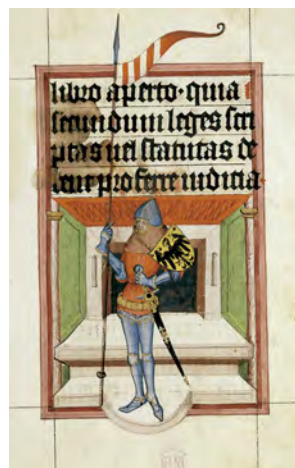 libro aperto· quia
secundum leges scri
ptas uel statutas de
bent proferre iudicia·